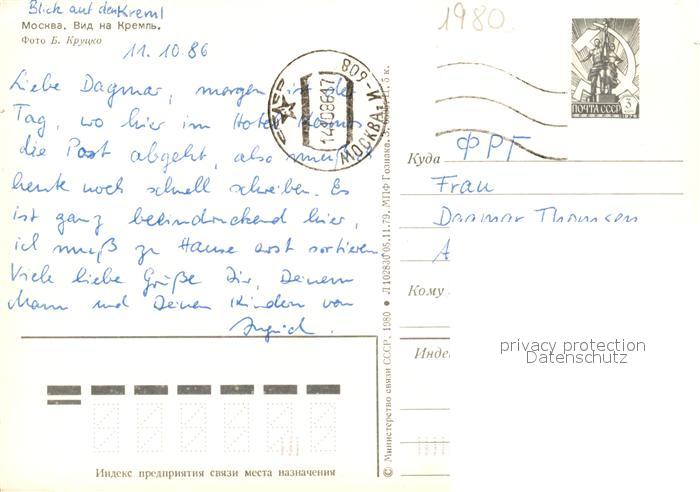 Blick auf den Kreml
Москва. Вид на Кремль.
Фото Б. Круцко
11.10.86
Liebe Dagmar, morgen ist der
Tag, wo hier im Hotel Kosmos
die Post abgeht, also muß ich
heute noch schnell schreiben. Es
ist ganz beeindruckend hier,
ich muß zu Hause erst sortieren.
Viele liebe Grüße Dir, Deinem
Mann und Deinen Kindern von
Ingrid.
Индекс предприятия связи места назначения
© Министерство связи СССР. 1980 ● Л 102830 05.11.79. МПФ Гознака. З. 5 к.
СССР
МОСКВА И-809
1980
ПОЧТА СССР
3
Куда ФРГ
Frau
Dagmar Thomsen
A
Кому
Инде
privacy protection
Datenschutz